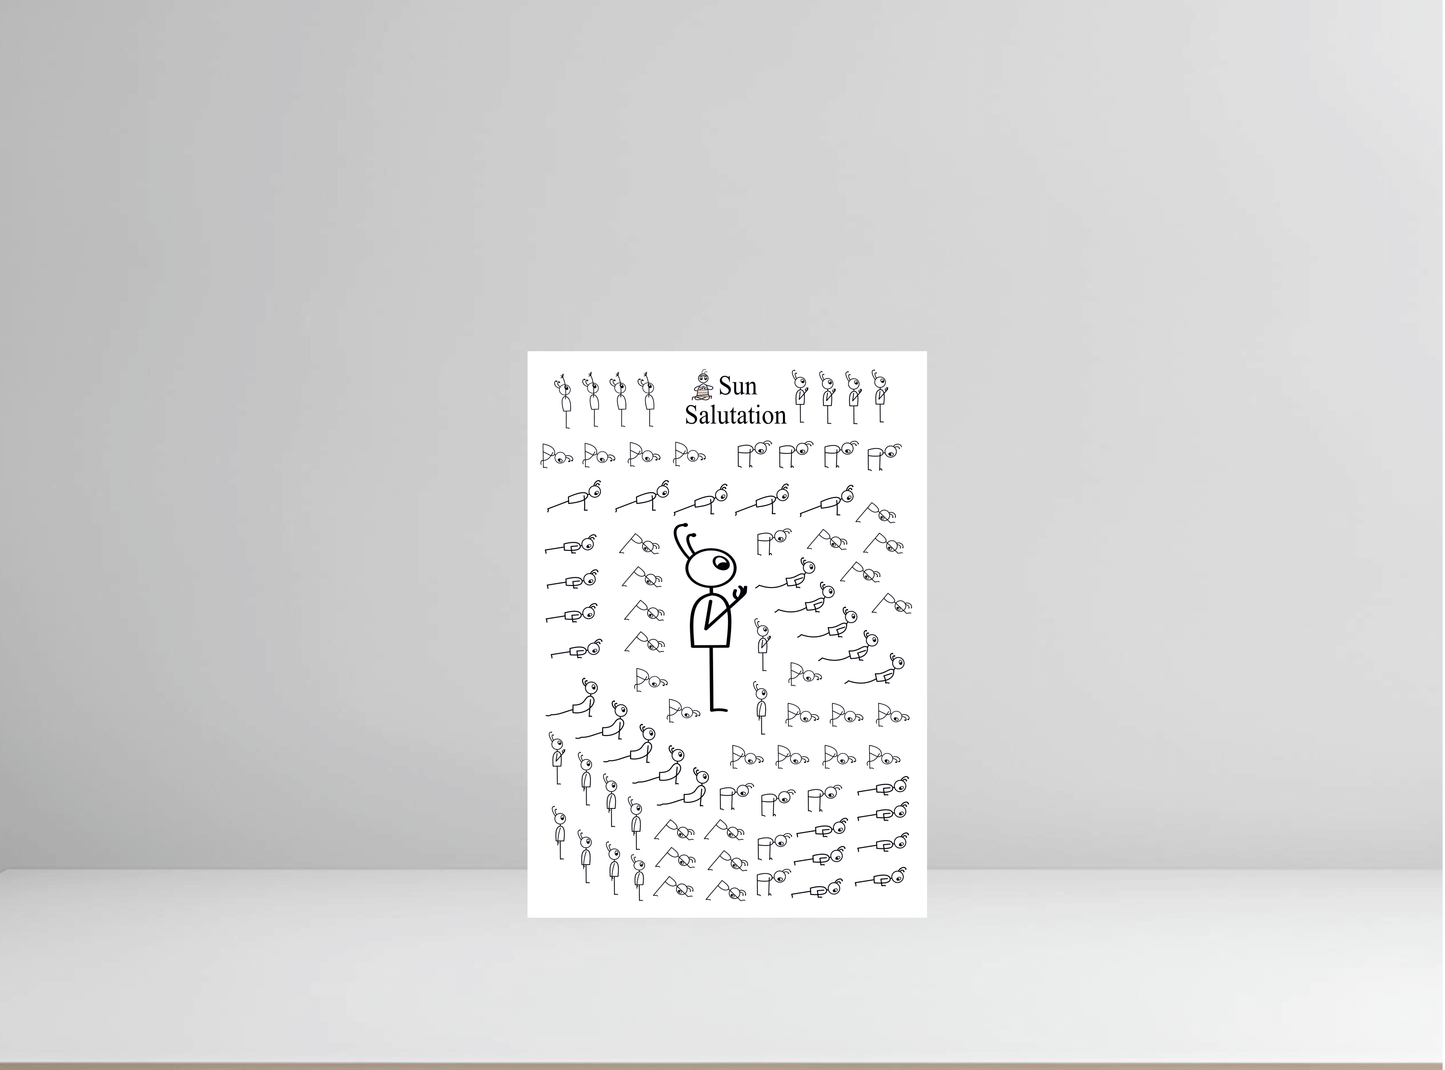 Sun
Salutation